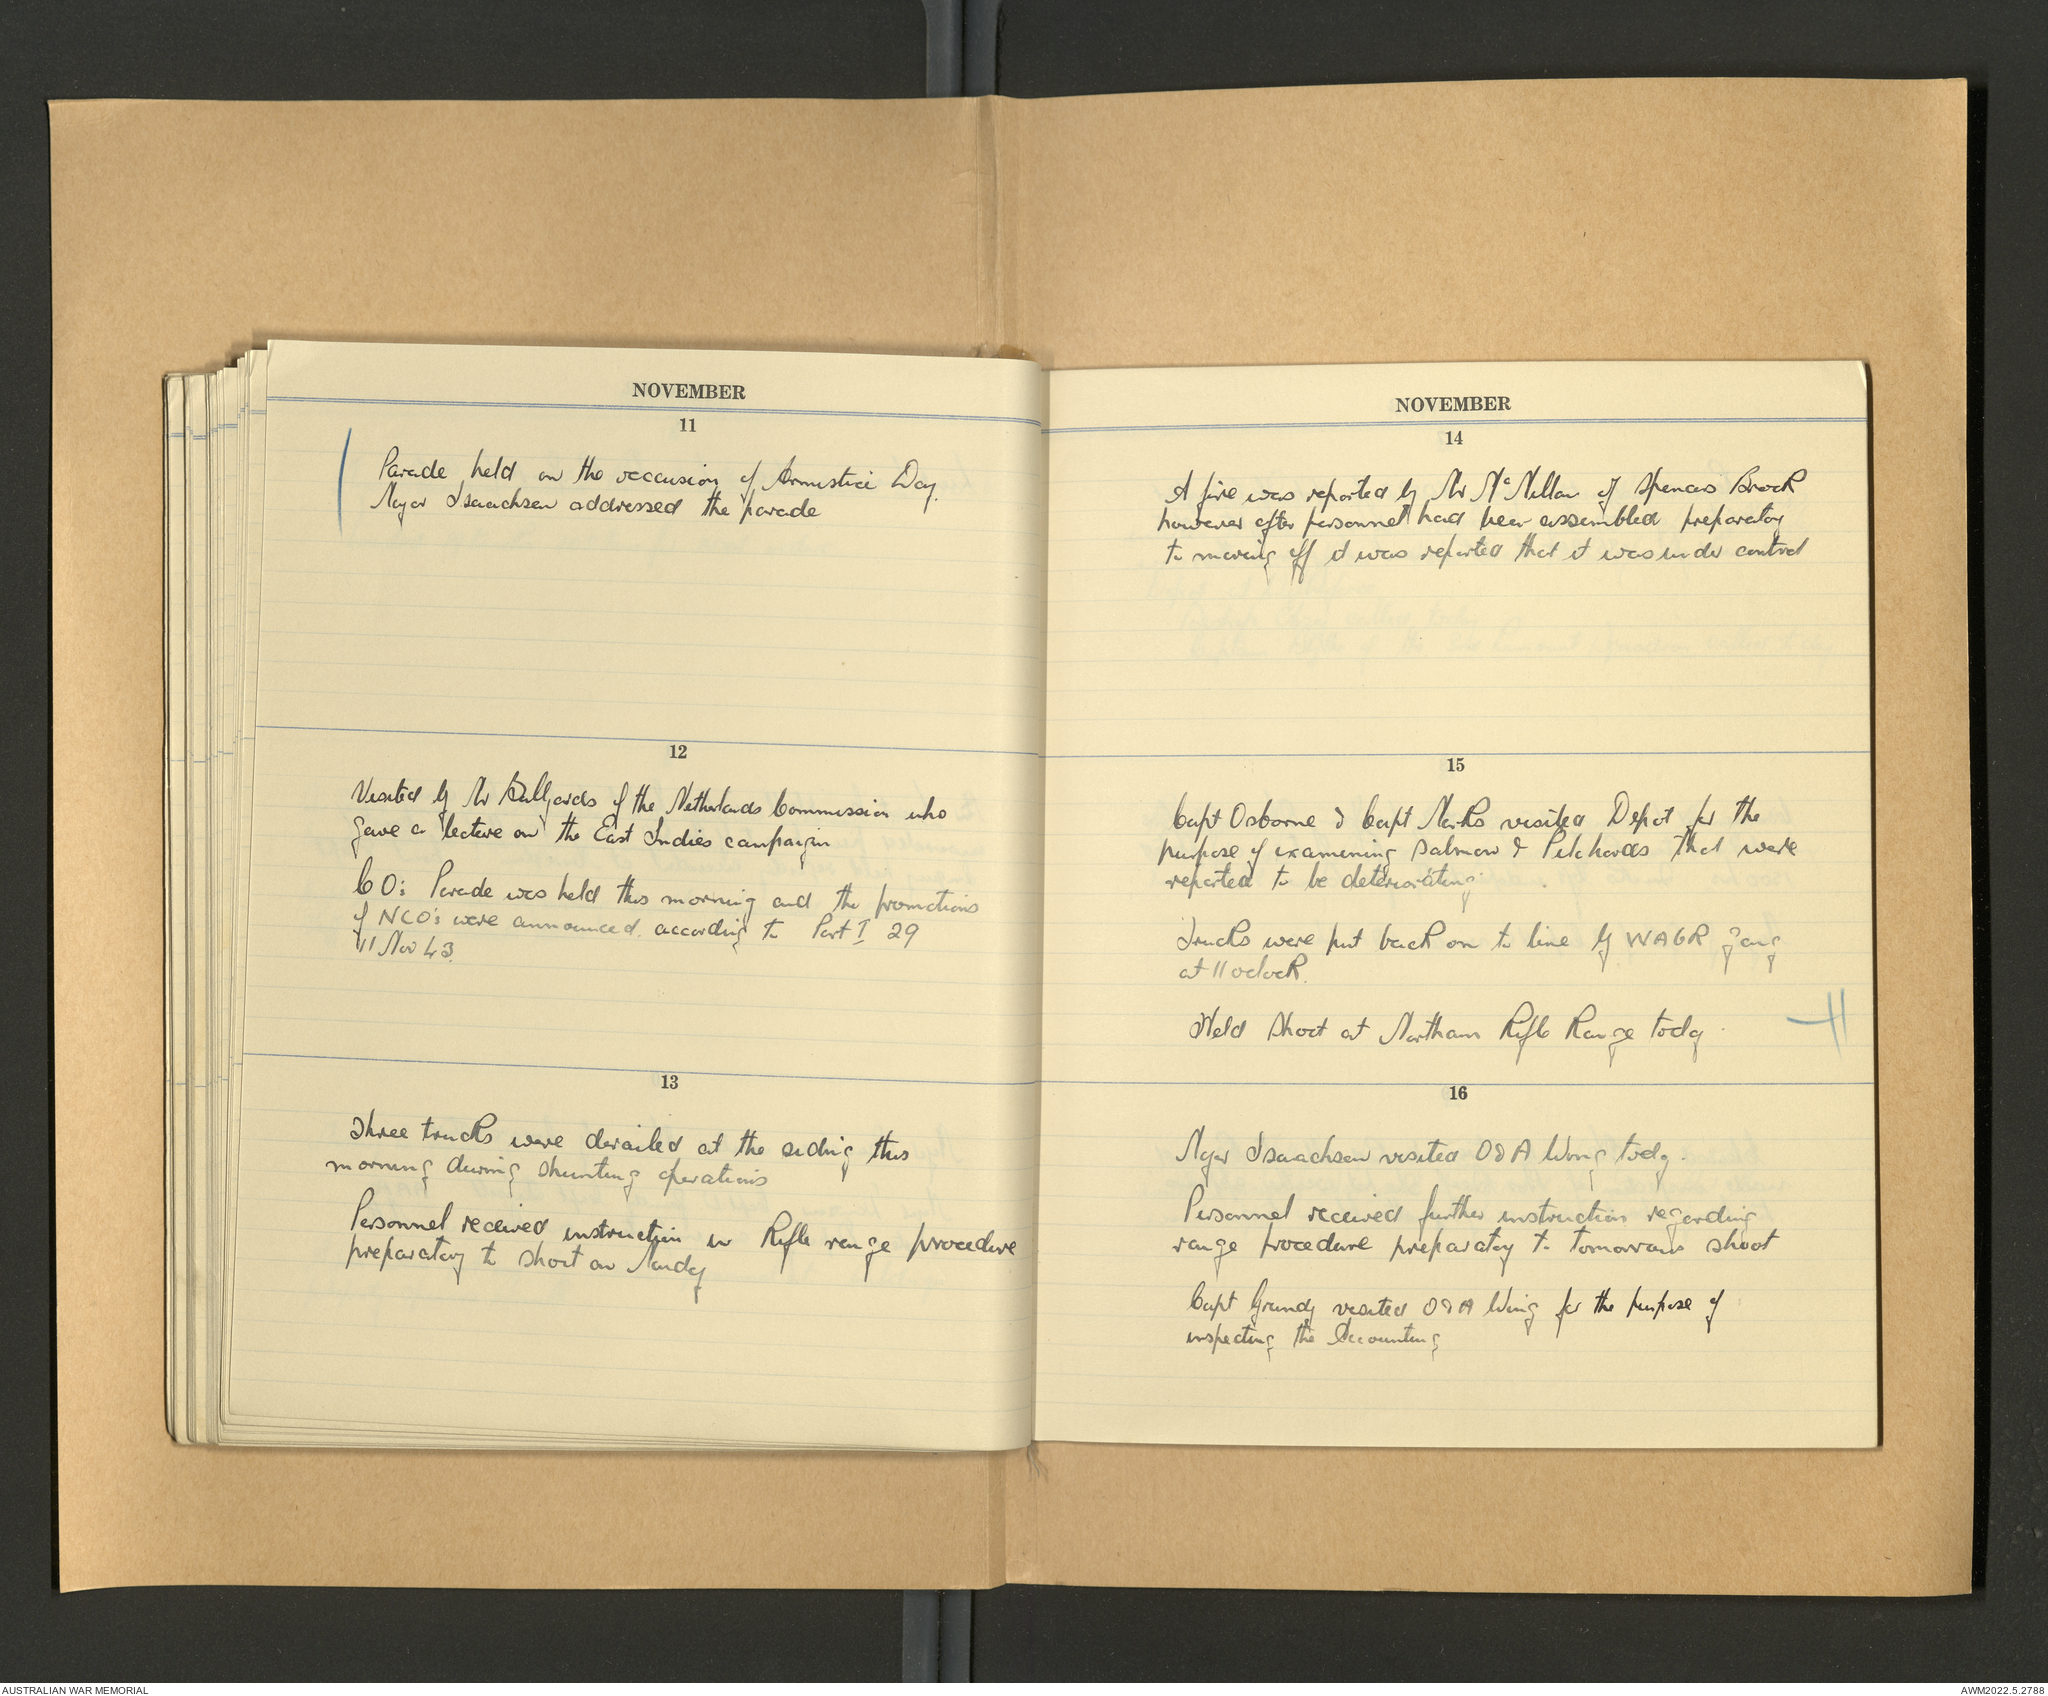 NOVEMBER
11
Parade held on the occasion of Armistice Day.
Major Isaachsen addressed the parade
12
Visited by Mr of the Netherlands Commission who
gave a lecture on the East Indies campaign
CO's Parade was held this morning and the promotions
of NCO's were announced according to Part I 29
11 Nov 43.
13
Three trucks were derailed at the siding this
morning during shunting operations
Personnel received instruction in Rifle range procedure
preparatory to shoot on Monday
NOVEMBER
14
A fire was reported by Mr McMillan of Spencers Brook
however after personnel had been assembled preparatory
to moving off it was reported that it was under control
15
Capt Osborne & Capt Marks visited Depot for the
purpose of examining Salmon & Pilchards that were
reported to be deteriorating.
Trucks were put back on to line by WAGR gang
at 11 oclock.
Held Shoot at Northam Rifle Range today.
16
Major Isaachsen visited O&A Wing today.
Personnel received further instruction regarding
range procedure preparatory to tomorrows shoot
Capt Grundy visited O&A Wing for the purpose of
inspecting the Accounting
AUSTRALIAN WAR MEMORIAL
AWM2022.5.2788